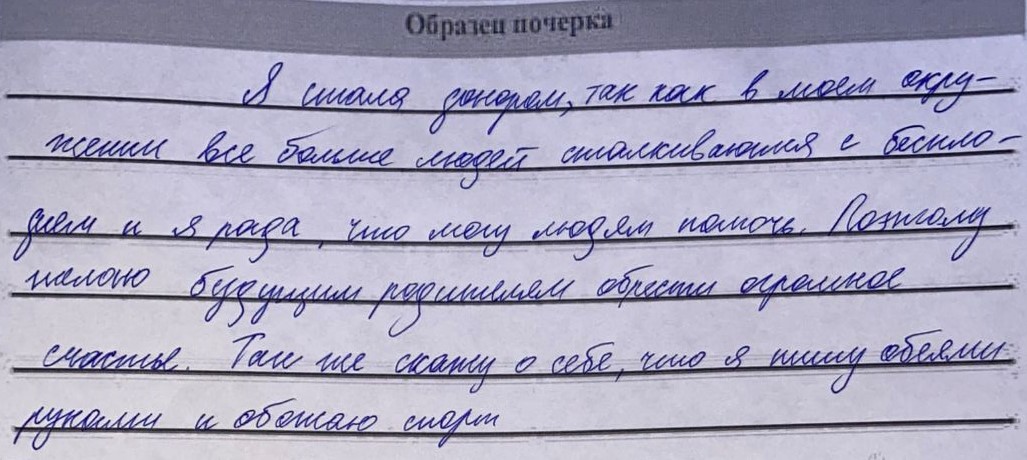 Образец почерка
Я стала донором, так как в моем окру-
жении все больше людей сталкиваются с беспло-
дием и я рада, что могу людям помочь. Поэтому
желаю будущим родителям обрести огромное
счастье. Так же скажу о себе, что я пишу обеями
руками и обожаю спорт